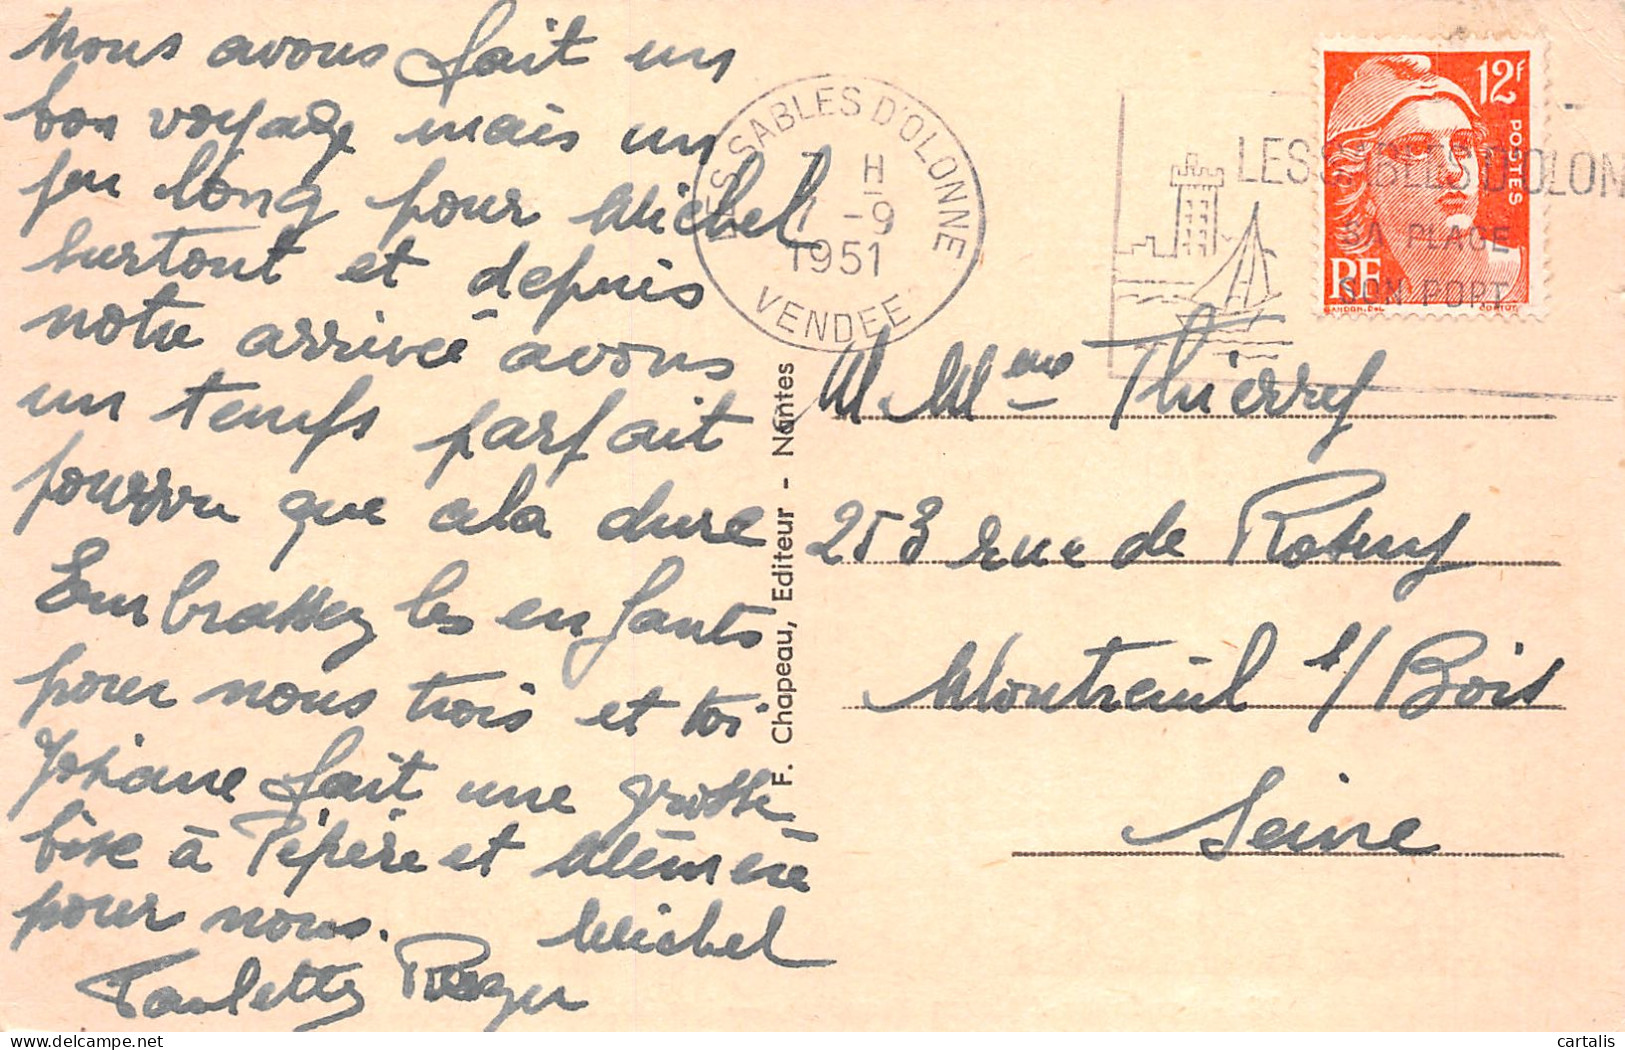 Nous avons fait un
bon voyage mais un
peu long pour Michel
surtout et depuis
notre arrivée avons
un temps parfait
pourvu que cela dure
Embrassez les enfants
pour nous trois et toi
Josiane fait une grosse
bise à Pépère et Mémère
pour nous. Michel
Paulette Roger
F. Chapeau, Editeur - Nantes
LES SABLES D'OLONNE
H
1 -9
1951
VENDEE
LES SABLES D'OLON
SA PLAGE
SON PORT
12F
POSTES
RF
GANDON.DEL
CORTOT.
M. Mme Thierry
253 rue de Rosny
Montreuil s/ Bois
Seine
cartalis